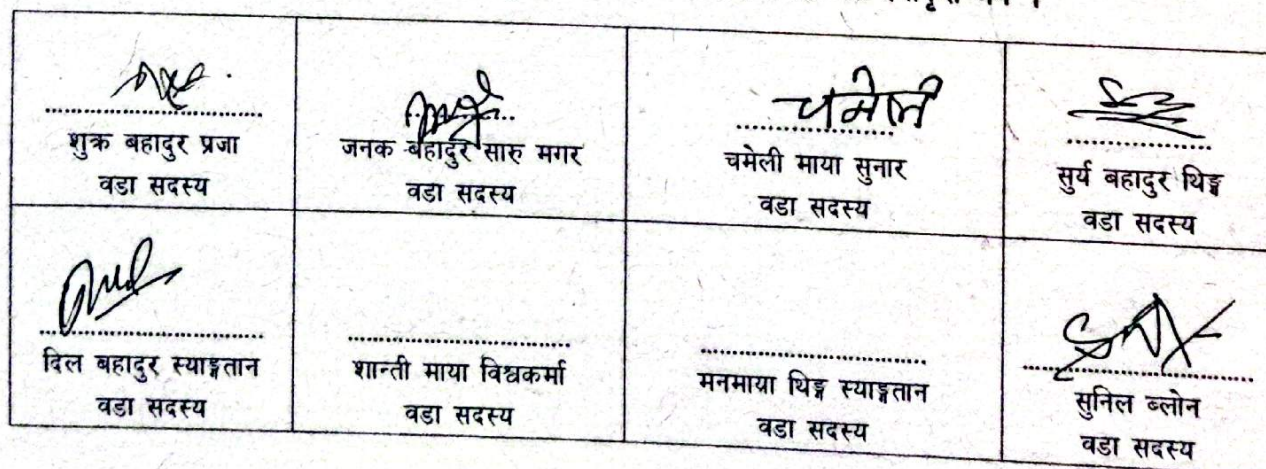 शुक्र बहादुर प्रजा
वडा सदस्य
जनक बहादुर सारु मगर
वडा सदस्य
चमेली
चमेली माया सुनार
वडा सदस्य
सुर्य बहादुर थिङ्ग
वडा सदस्य
दिल बहादुर स्याङ्गतान
वडा सदस्य
शान्ती माया विश्वकर्मा
वडा सदस्य
मनमाया थिङ्ग स्याङ्गतान
वडा सदस्य
सुनिल ब्लोन
वडा सदस्य